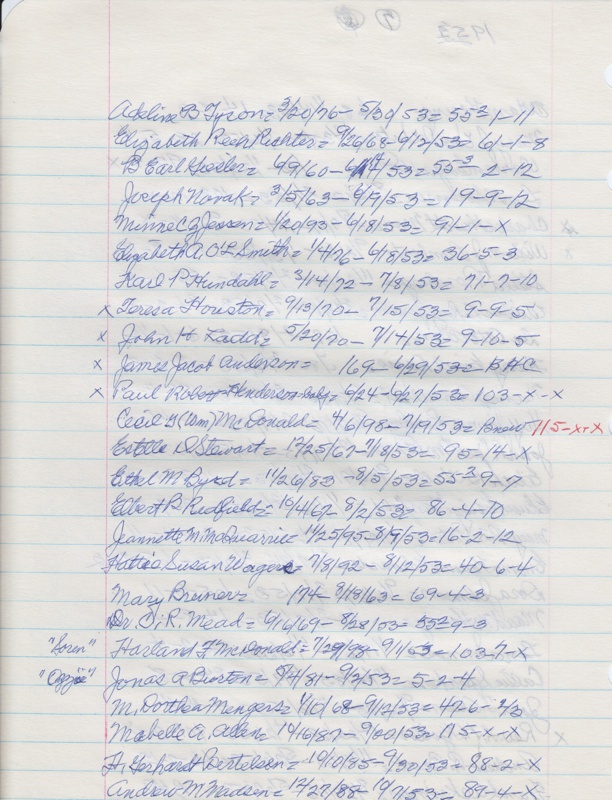 Adeline B Tyron = 3/20/76 - 5/30/53 = 55² 1-11
Elizabeth Reek Richter = 9/26/68 - 4/12/53 = 61-1-8
B Earl 4/9/60 - /53 = 55³-2-12
Joseph Novak = 3/5/63 - 4/9/53 = 19-9-12
Minne C J Jensen = 1/20/93 - 4/18/53 = 91-1-X
Elizabeth A. O L Smith = 1/4/76 - 4/18/53 = 36-5-3
Karl P Hundahl = 3/14/72 - 7/8/53 = 71-7-10
x Teresa Houston = 9/13/70 - 7/15/53 = 9-9-5
x John H Ladd = 5/20/70 - 7/14/53 = 9-16-5
x James Jacob Anderson = 169 - 6/29/53 = BHC
x Paul Robert Henderson baby = 6/24 - 6/27/53 = 103-X-X
Cecil G (Wm) McDonald = 4/6/98 - 7/19/53 = Bnew 115-X-X
Estelle D Stewart = 12/25/67 - 7/18/53 = 95-14-X
Ethel M Byrd = 11/26/83 - 8/5/53 = 55³ 9-7
Elbert B Redfield = 10/4/67 - 8/2/53 = 86-4-10
Jeannette M McQuarrie = 11/25/95 - 8/9/53 = 16-2-12
Hattie Susan Wagers = 7/8/92 - 8/12/53 = 40-6-4
Mary Breiner = 174 - 8/18/63 = 69-4-3
Dr. O. R. Mead = 4/16/69 - 8/28/53 = 55² 9-3
"Loren" Harland F McDonald = 7/29/98 - 9/1/53 = 103-7-X
"Ozzie" Jonas A Burton = 8/4/81 - 9/2/53 = 5-2-4
M. Dorthea Mengers = 1/10/68 - 9/12/53 = 47-6-2/3
Mabelle A. Allen = 10/16/87 - 9/20/53 = 115-X-X
H. Gerhardt Bertelsen = 10/10/85 - 9/30/53 = 88-2-X
Andrew M Madsen = 12/27/88 - 10/7/53 = 89-4-X